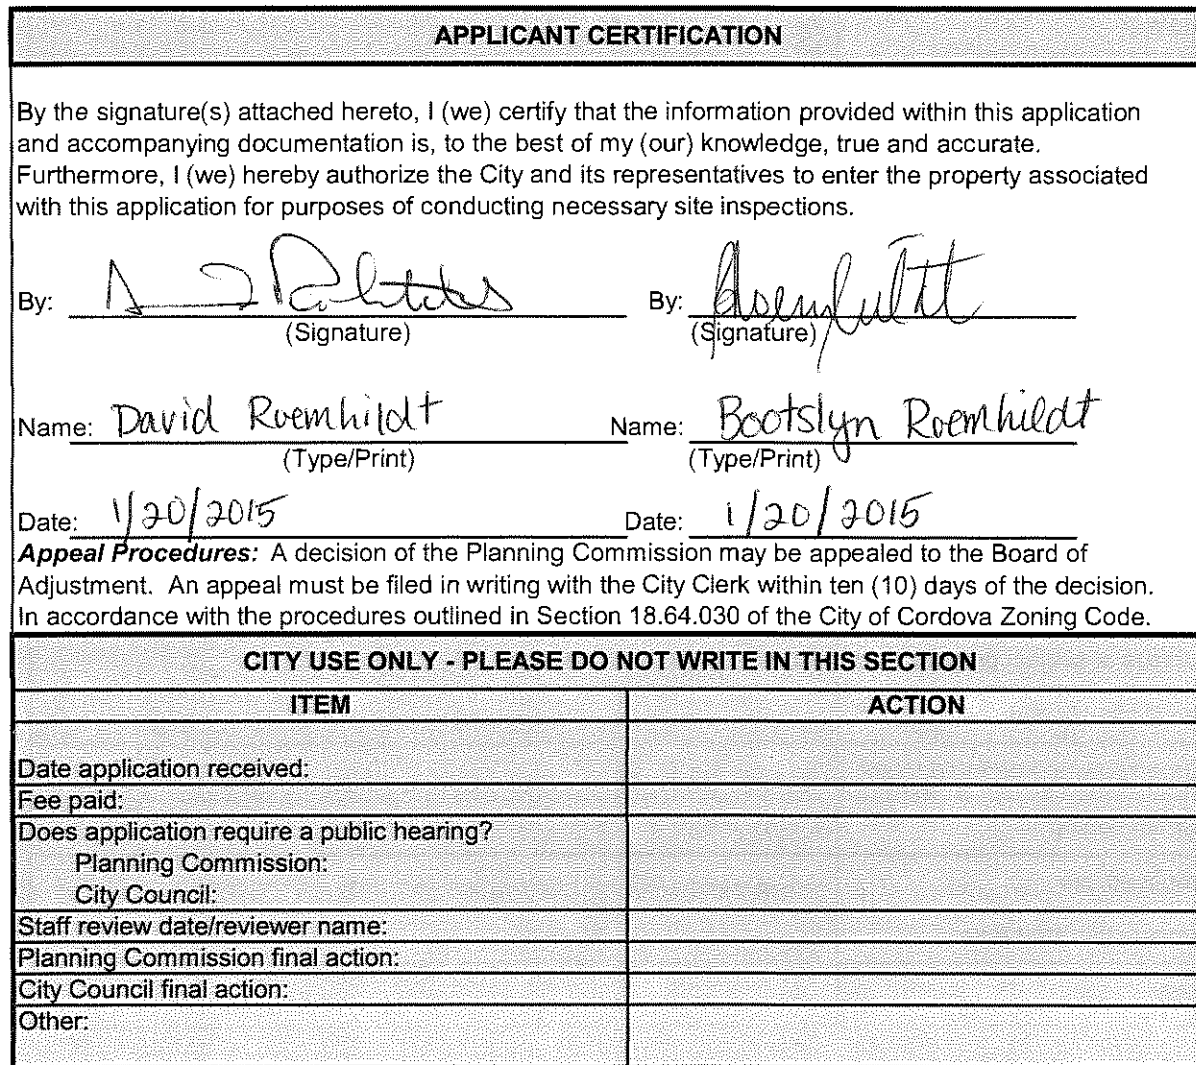 APPLICANT CERTIFICATION
By the signature(s) attached hereto, I (we) certify that the information provided within this application
and accompanying documentation is, to the best of my (our) knowledge, true and accurate.
Furthermore, I (we) hereby authorize the City and its representatives to enter the property associated
with this application for purposes of conducting necessary site inspections.
By: By:
(Signature) (Signature)
Name: David Roemhildt Name: Bootslyn Roemhildt
(Type/Print) (Type/Print)
Date: 1/20/2015 Date: 1/20/2015
Appeal Procedures: A decision of the Planning Commission may be appealed to the Board of
Adjustment. An appeal must be filed in writing with the City Clerk within ten (10) days of the decision.
In accordance with the procedures outlined in Section 18.64.030 of the City of Cordova Zoning Code.
CITY USE ONLY - PLEASE DO NOT WRITE IN THIS SECTION
ITEM ACTION
Date application received:
Fee paid:
Does application require a public hearing?
Planning Commission:
City Council:
Staff review date/reviewer name:
Planning Commission final action:
City Council final action:
Other: